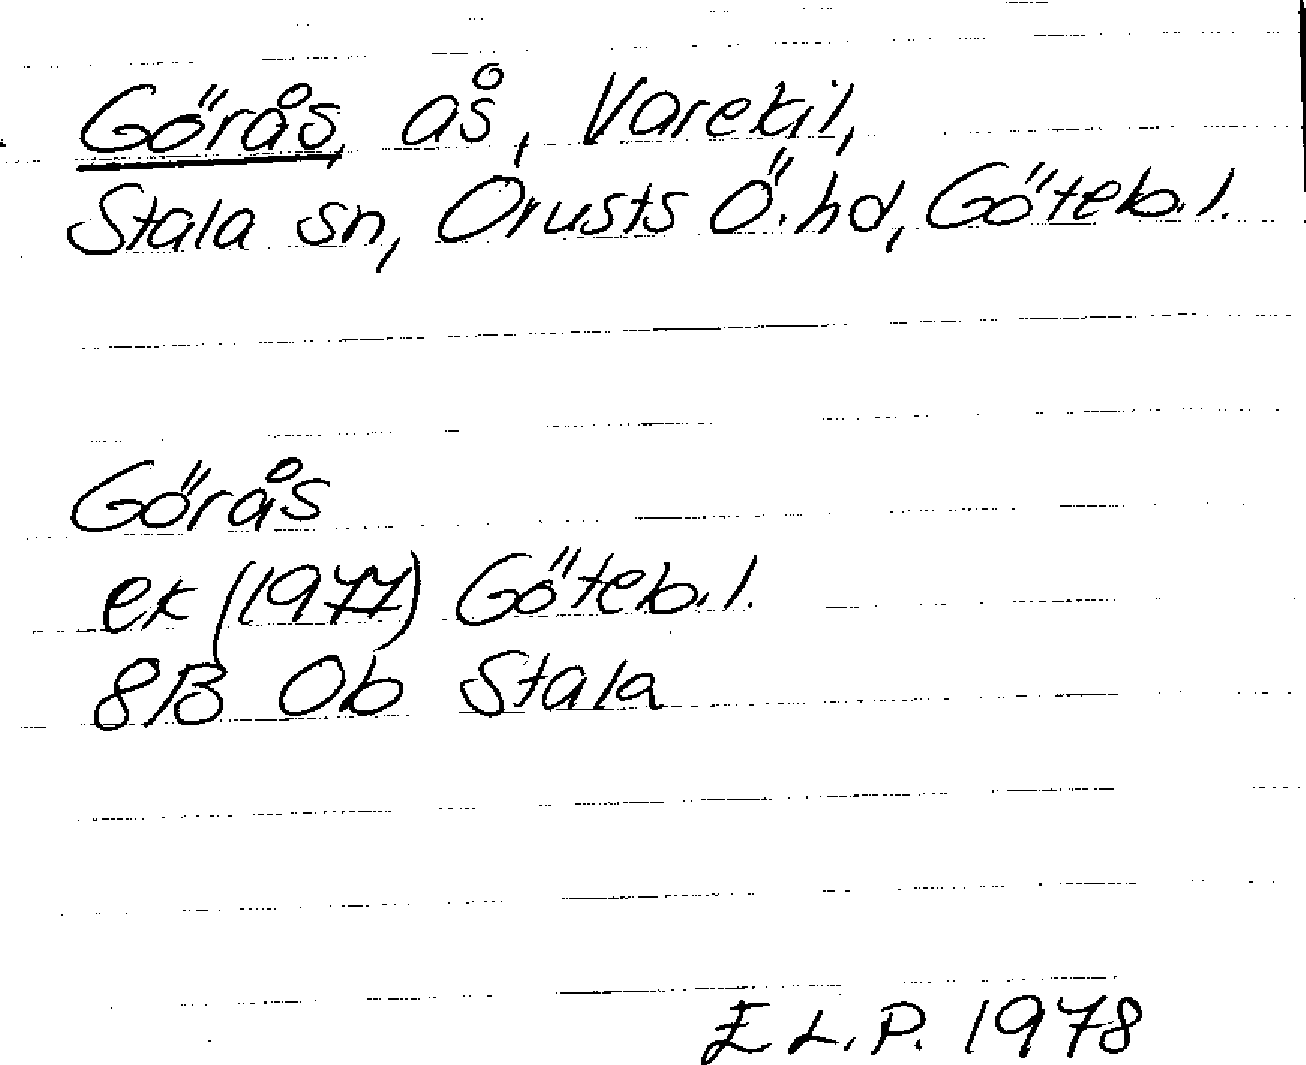 Görås, ås, Varekil,
Stala sn, Orusts Ö. hd, Göteb. l.
Görås
ek (1977) Göteb. l.
8B 0b Stala
E L. P. 1978